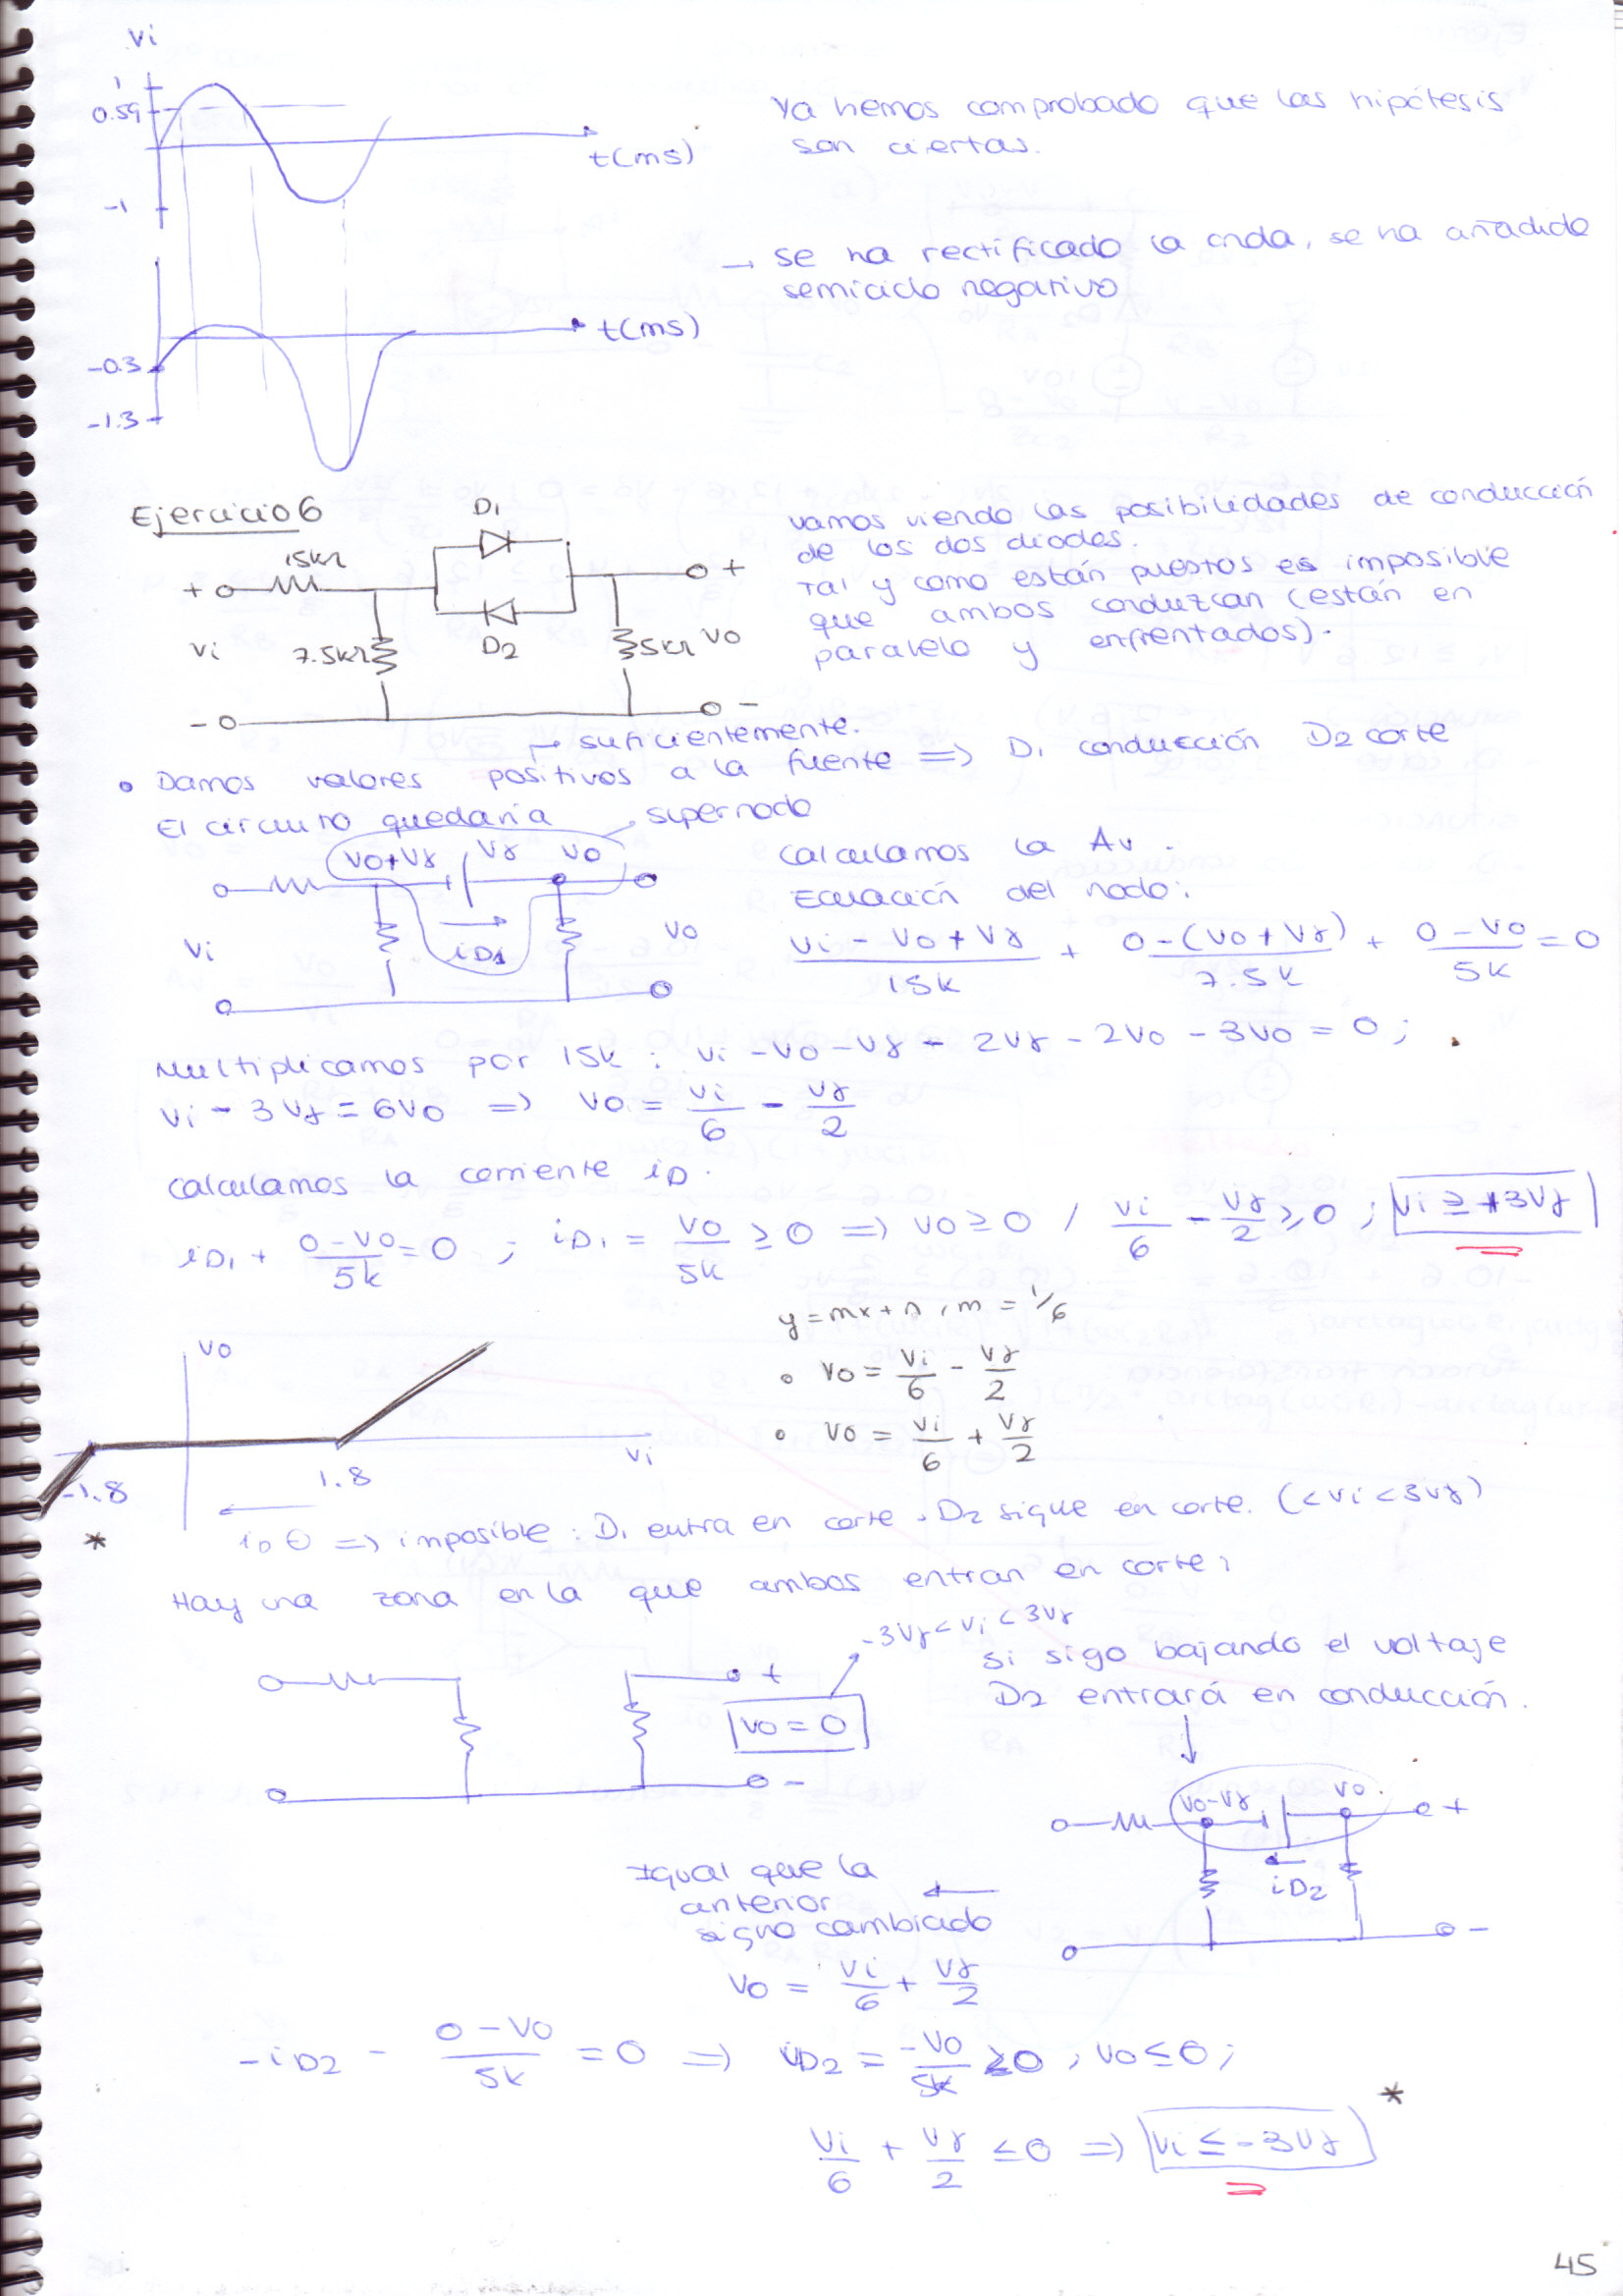 Vi
1
0.59
-1
t(ms)
Ya hemos comprobado que las hipótesis
son ciertas.
→ se ha rectificado la onda, se ha añadido
semiciclo negativo
t(ms)
-0.3
-1.3
Ejercicio 6
D1
15kΩ
+
+
Vi
7.5kΩ
D2
5kΩ
Vo
-
-
Vamos viendo las posibilidades de conducción
de los dos diodos.
Tal y como están puestos es imposible
que ambos conduzcan (están en
paralelo y enfrentados).
→ suficientemente.
• Damos valores positivos a la fuente => D1 conducción D2 corte
El circuito quedaría
supernodo
Vo+Vγ
Vγ
Vo
Vi
iD1
Vo
Calculamos la Av.
Ecuación del nodo:
(Vi - Vo + Vγ)/15k + (0-(Vo+Vγ))/7.5k + (0-Vo)/5k = 0
Multiplicamos por 15k: Vi - Vo - Vγ - 2Vγ - 2Vo - 3Vo = 0;
Vi - 3Vγ = 6Vo => Vo = Vi/6 - Vγ/2
Calculamos la corriente iD.
iD1 + (0-Vo)/5k = 0 ; iD1 = Vo/5k ≥ 0 => Vo ≥ 0 / Vi/6 - Vγ/2 ≥ 0 ; Vi ≥ +3Vγ
y = mx + n, m = 1/6
• Vo = Vi/6 - Vγ/2
• Vo = Vi/6 + Vγ/2
Vo
Vi
-1.8
1.8
*
iD ⊖ => imposible: D1 entra en corte. D2 sigue en corte. (<Vi<3Vγ)
Hay una zona en la que ambos entran en corte:
-3Vγ < Vi < 3Vγ
+
Vo = 0
-
Si sigo bajando el voltaje
D2 entrará en conducción.
Vo-Vγ
Vo
+
iD2
-
Igual que la
anterior
signo cambiado
Vo = Vi/6 + Vγ/2
-iD2 - (0-Vo)/5k = 0 => iD2 = -Vo/5k ≥ 0, Vo ≤ 0;
*
Vi/6 + Vγ/2 ≤ 0 => Vi ≤ -3Vγ
45